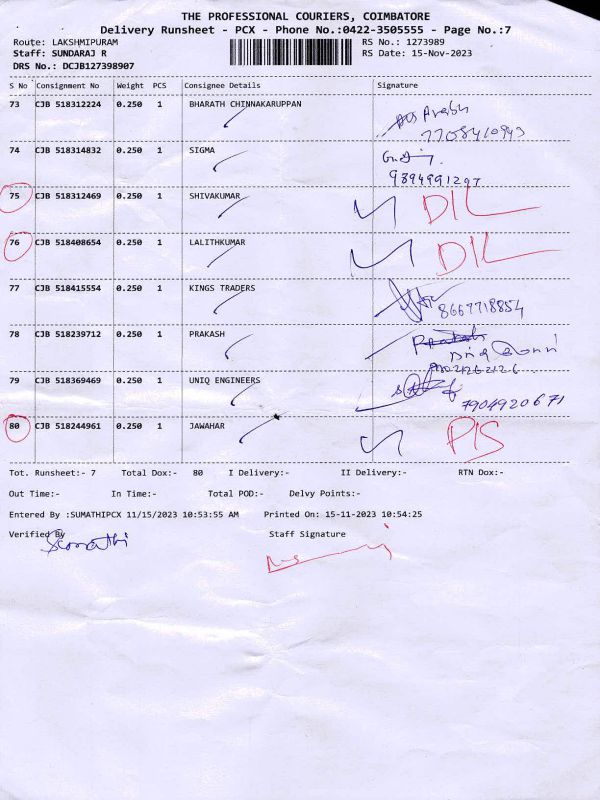 THE PROFESSIONAL COURIERS, COIMBATORE
Delivery Runsheet - PCX - Phone No.:0422-3505555 - Page No.:7
Route: LAKSHMIPURAM RS No.: 1273989
Staff: SUNDARAJ R RS Date: 15-Nov-2023
DRS No.: DCJB127398907
S No Consignment No Weight PCS Consignee Details Signature
73 CJB 518312224 0.250 1 BHARATH CHINNAKARUPPAN
7708410943
74 CJB 518314832 0.250 1 SIGMA
9894991297
75 CJB 518312469 0.250 1 SHIVAKUMAR D/L
76 CJB 518408654 0.250 1 LALITHKUMAR D/L
77 CJB 518415554 0.250 1 KINGS TRADERS 8667718854
78 CJB 518239712 0.250 1 PRAKASH
79 CJB 518369469 0.250 1 UNIQ ENGINEERS
7904920671
80 CJB 518244961 0.250 1 JAWAHAR P/S
Tot. Runsheet:- 7 Total Dox:- 80 I Delivery:- II Delivery:- RTN Dox:-
Out Time:- In Time:- Total POD:- Delvy Points:-
Entered By :SUMATHIPCX 11/15/2023 10:53:55 AM Printed On: 15-11-2023 10:54:25
Verified By Staff Signature
Sumathi